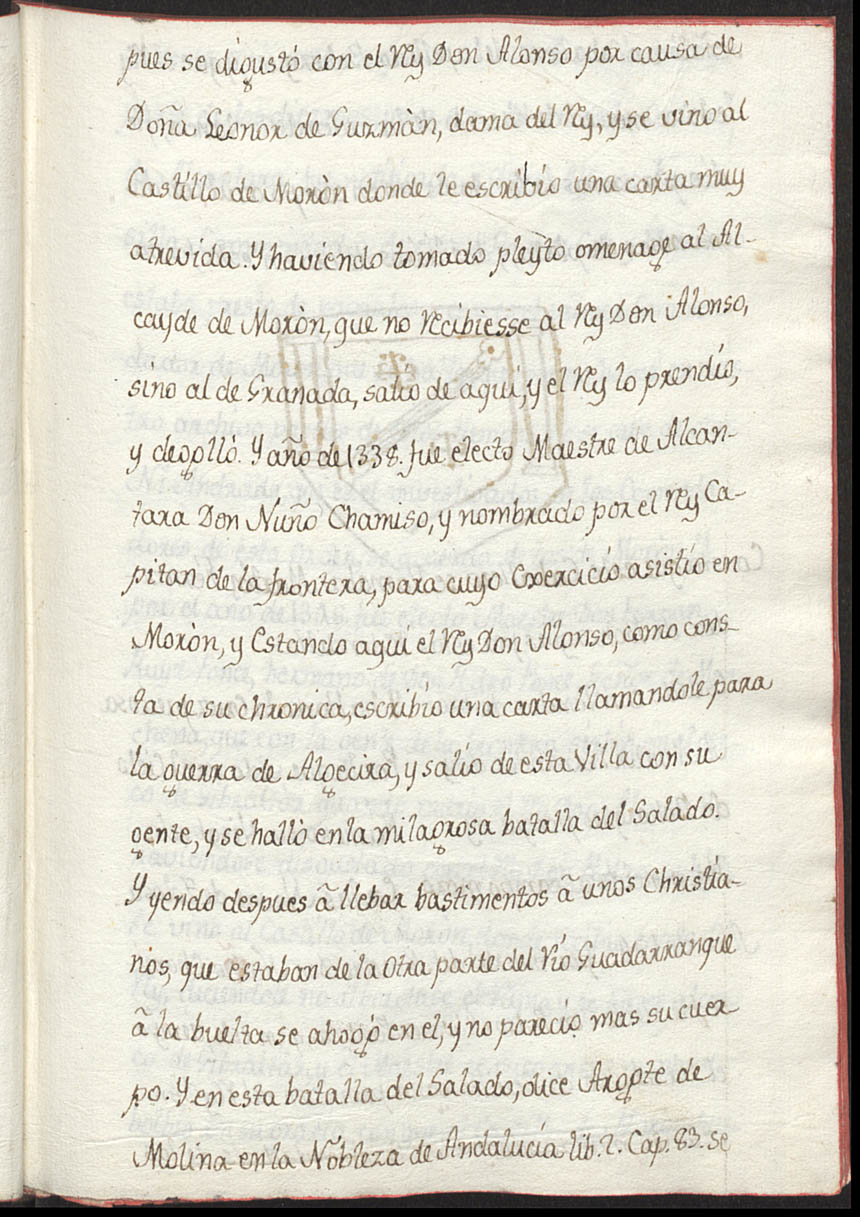 pues se digustó con el Rey Don Alonso por causa de
Doña Leonor de Guzmàn, dama del Rey, y se vino al
Castillo de Moròn donde le escribio una carta muy
atrevida. Y haviendo tomado pleyto omenage al Al-
cayde de Moròn, que no recibiesse al Rey Don Alonso,
sino al de Granada, salio de aqui, y el Rey lo prendio,
y degolló. Y año de 1338. fue electo Maestre de Alcan-
tara Don Nuño Chamiso, y nombrado por el Rey Ca-
pitan de la frontera, para cuyo Exercicio asistio en
Moròn, y Estando aqui el Rey Don Alonso, como cons-
ta de su chronica, escribio una carta llamandole para
la guerra de Algecira, y salio de esta Villa con su
gente, y se hallò en la milagrosa batalla del Salado.
Y yendo despues â llebar bastimentos â unos Christia-
nos, que estaban de la Otra parte del Rio Guadarranque
â la buelta se ahogò en el, y no parecio mas su cuer
po. Y en esta batalla del Salado, dice Argote de
Molina en la Nobleza de Andalucia lib. 2. Cap. 83. se